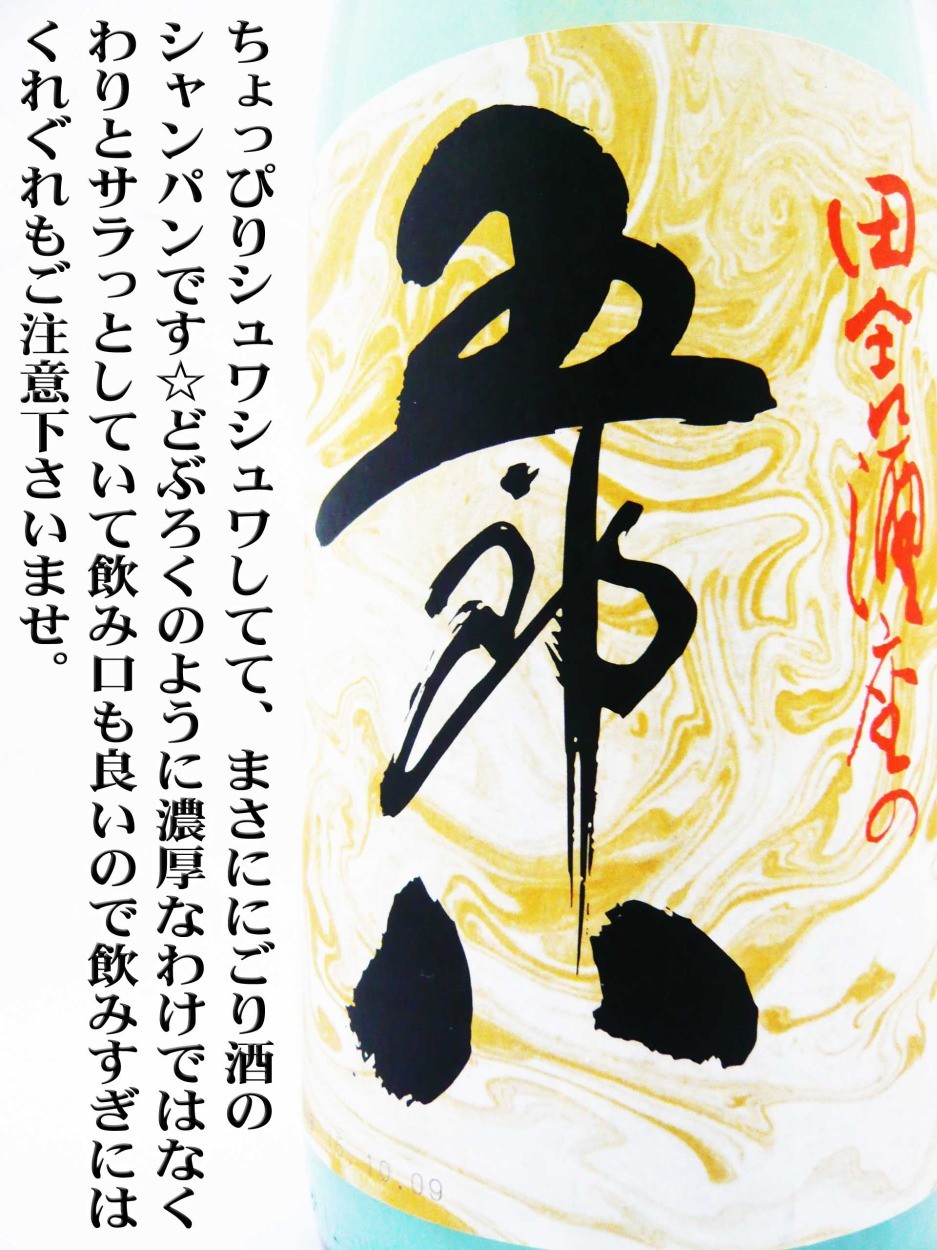 ちょっぴりシュワシュワしてて、まさににごり酒の
シャンパンです☆どぶろくのように濃厚なわけではなく
わりとサラっとしていて飲み口も良いので飲みすぎには
くれぐれもご注意下さいませ。
五郎八
の
10.09